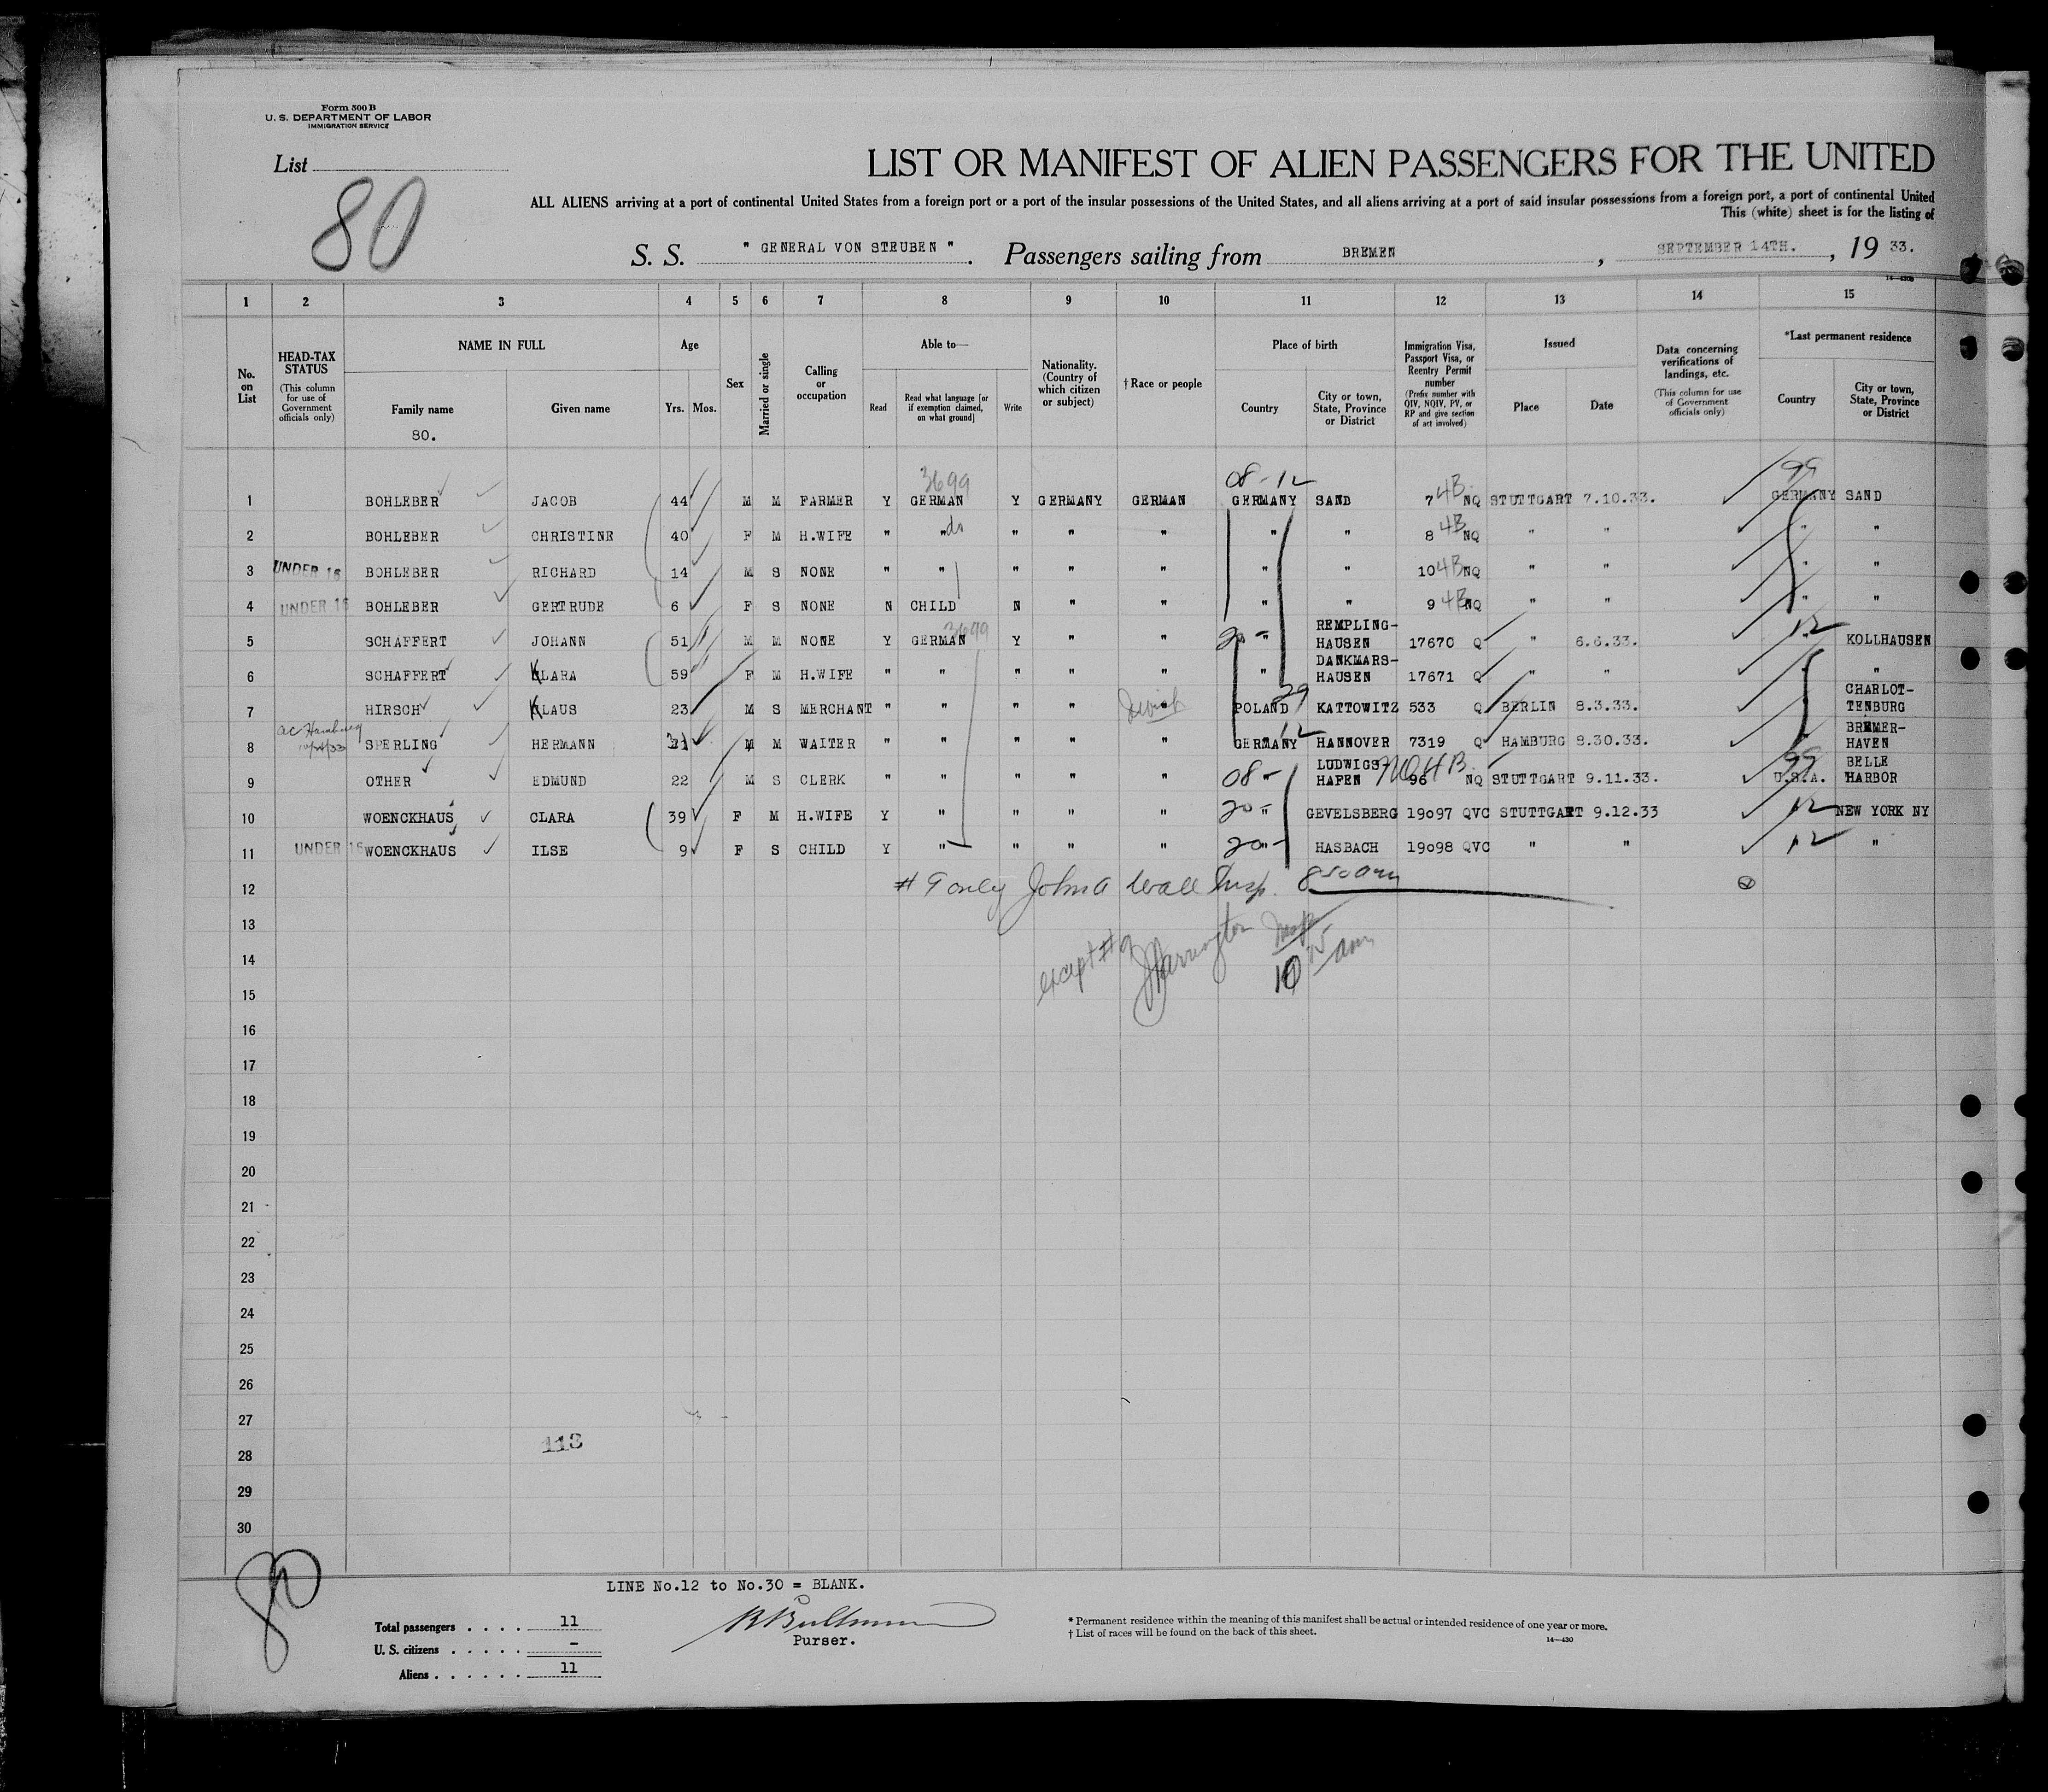 Form 500 B
U. S. DEPARTMENT OF LABOR
IMMIGRATION SERVICE
List
80
LIST OR MANIFEST OF ALIEN PASSENGERS FOR THE UNITED
ALL ALIENS arriving at a port of continental United States from a foreign port or a port of the insular possessions of the United States, and all aliens arriving at a port of said insular possessions from a foreign port, a port of continental United
This (white) sheet is for the listing of
S. S. " GENERAL VON STEUBEN ". Passengers sailing from BREMEN , SEPTEMBER 14TH. , 19 33.
14—430B
1 2 3 4 5 6 7 8 9 10 11 12 13 14 15
No. on List
HEAD-TAX STATUS (This column for use of Government officials only)
NAME IN FULL
Family name
80.
Given name
Age
Yrs. Mos.
Sex
Married or single
Calling or occupation
Able to—
Read
Read what language [or if exemption claimed, on what ground]
Write
Nationality. (Country of which citizen or subject)
† Race or people
Place of birth
Country
City or town, State, Province or District
Immigration Visa, Passport Visa, or Reentry Permit number (Prefix number with QIV, NQIV, PV, or RP and give section of act involved)
Issued
Place
Date
Data concerning verifications of landings, etc. (This column for use of Government officials only)
*Last permanent residence
Country
City or town, State, Province or District
3699 08-12 99
1 BOHLEBER JACOB 44 M M FARMER Y GERMAN Y GERMANY GERMAN GERMANY SAND 7 4B NQ STUTTGART 7.10.33. GERMANY SAND
2 BOHLEBER CHRISTINE 40 F M H.WIFE " " do " " " " " 8 4B NQ " " " "
3 UNDER 16 BOHLEBER RICHARD 14 M S NONE " " " " " " " 10 4B NQ " " " "
4 UNDER 16 BOHLEBER GERTRUDE 6 F S NONE N CHILD N " " " " 9 4B NQ " " " "
5 SCHAFFERT JOHANN 51 M M NONE Y GERMAN 3699 Y " " 20 - " REMPLING-HAUSEN 17670 Q " 6.6.33. 12 " KOLLHAUSEN
6 SCHAFFERT KLARA 59 F M H.WIFE " " " " " " DANKMARS-HAUSEN 17671 Q " " "
7 HIRSCH KLAUS 23 M S MERCHANT " " " " " Jewish POLAND 29 KATTOWITZ 533 Q BERLIN 8.3.33. CHARLOT-TENBURG
8 SPERLING HERMANN M M WAITER " " " " " GERMANY 12 HANNOVER 7319 Q HAMBURG 8.30.33. " BREMER-HAVEN
9 OTHER EDMUND 22 M S CLERK " " " " " 08 - " LUDWIGS-HAFEN 96 NQ STUTTGART 9.11.33. 99 U.S.A. BELLE HARBOR
10 WOENCKHAUS CLARA 39 F M H.WIFE Y " " " " 20 - " GEVELSBERG 19097 QVC STUTTGART 9.12.33 12 NEW YORK NY
11 UNDER 16 WOENCKHAUS ILSE 9 F S CHILD Y " " " " 20 - " HASBACH 19098 QVC " " 12 "
12 # 9 only John A Wall Insp. 8 50 am
13
14 except #9 Harrington Insp 10 15 am
15
16
17
18
19
20
21
22
23
24
25
26
27
28 113
29
30
80
LINE No.12 to No.30 = BLANK.
Total passengers . . . . 11
U. S. citizens . . . . . –
Aliens . . . . . . 11
Purser.
* Permanent residence within the meaning of this manifest shall be actual or intended residence of one year or more.
† List of races will be found on the back of this sheet.
14—430